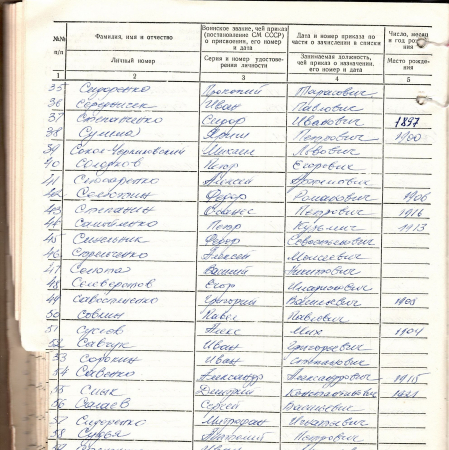 №№ п/п
Фамилия, имя и отчество
Воинское звание, чей приказ (постановление СМ СССР) о присвоении, его номер и дата
Дата и номер приказа по части о зачислении в списки
Число, месяц и год рождения
Личный номер
Серия и номер удостоверения личности
Занимаемая должность, чей приказ о назначении, его номер и дата
Место рождения
1 2 3 4 5
35 Сидоренко Прокопий Тарасович
36 Середисек Иван Павлович
37 Степаненко Сидор Иванович 1897
38 Сулима Петрович 1900
39 Сокол-Черниловский Михаил Львович
40 Следков Петр Егорович
41 Столяренко Алексей
42 Селюткин Федор Романович 1906
43 Степанян Петрович 1916
44 Самойленко Петр Кузьмич 1913
45 Синельник Федор Севостьянович
46 Сергиенко Алексей Моисеевич
47 Василий Никитович
48 Селиверстов Егор Илларионович
49 Савостиенко Григорий Васильевич 1903
50 Совкин Павел Павлович
51 Сусов Алекс Мих 1904
52 Савчук Иван Григорьевич
53 Сорокин Иван Степанович
54 Савенко Александр Александрович 1915
55 Смык Дмитрий Константинович 1921
56 Сагаев Сергей Васильевич
57 Сидоренко Митрофан Игнатьевич
58 Петрович
59